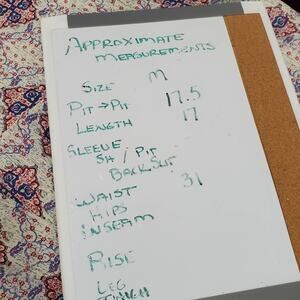 APPROXIMATE
MEASUREMENTS
SIZE M
PIT → PIT 17.5
LENGTH 17
SLEEVE
SH / PIT
BACK SLIT
WAIST 31
HIPS
INSEAM
RISE
LEG
THIGH